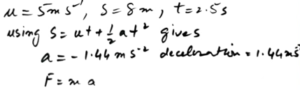 u = 5m s⁻¹, s = 8m, t = 2.5s
using s = ut + ½ at² gives
a = - 1.44 m s⁻² deceleration = 1.44 ms⁻²
F = m a